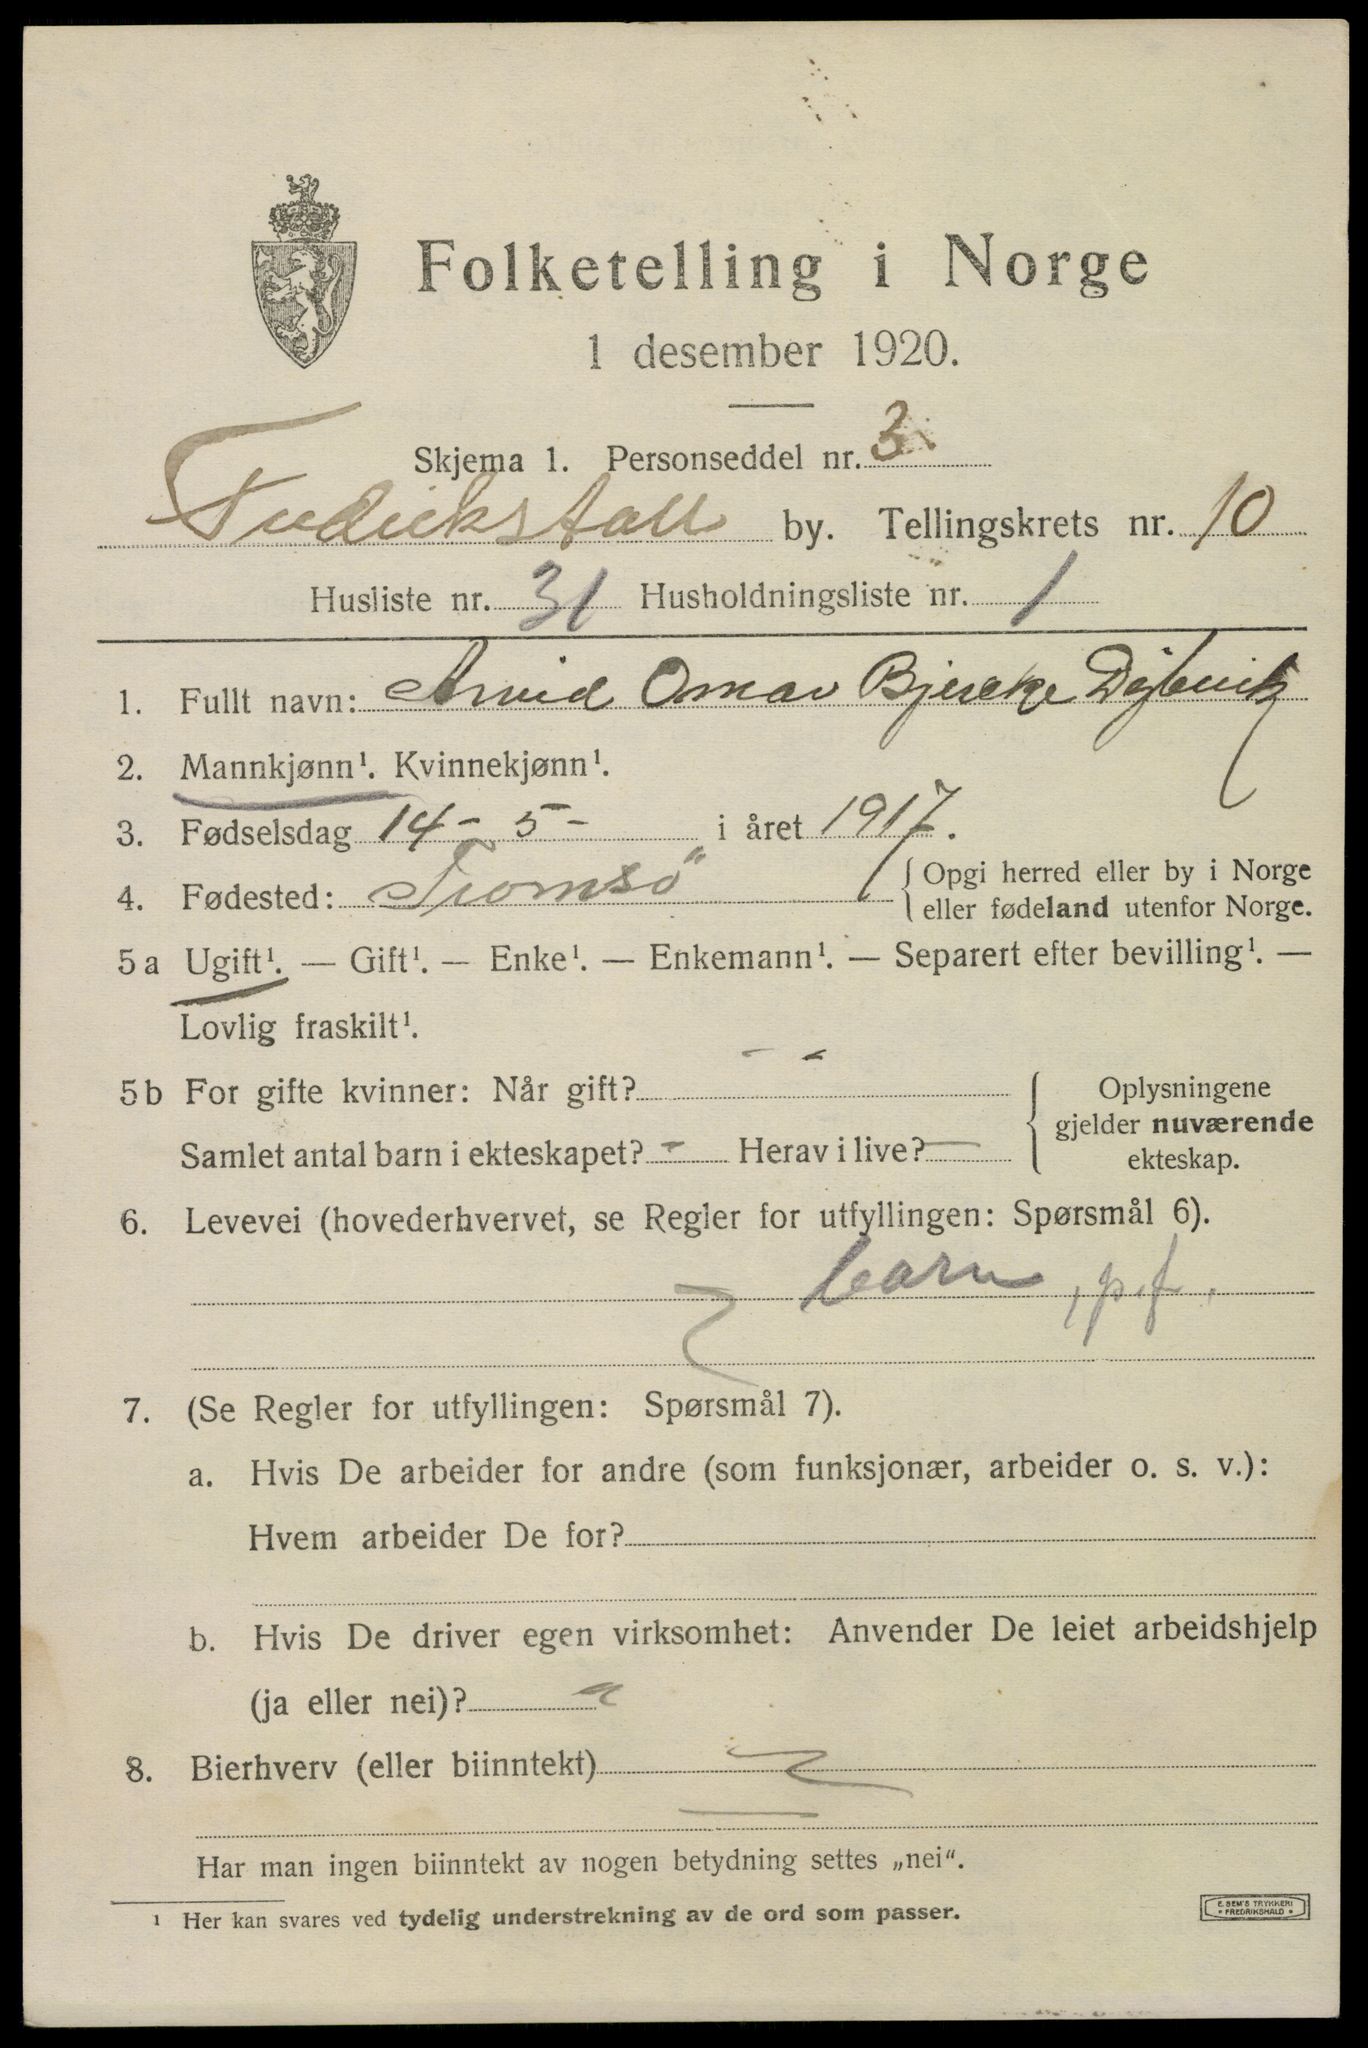 Folketelling i Norge
1 desember 1920.
Skjema 1. Personseddel nr. 3
Fredrikstad by. Tellingskrets nr. 10
Husliste nr. 31 Husholdningsliste nr. 1
1. Fullt navn: Arvid Omar Bjereke
2. Mannkjønn¹. Kvinnekjønn¹.
3. Fødselsdag 14 - 5 - i året 1917.
4. Fødested: Tromsö { Opgi herred eller by i Norge
eller fødeland utenfor Norge.
5a Ugift¹. — Gift¹. — Enke¹. — Enkemann¹. — Separert efter bevilling¹. —
Lovlig fraskilt¹.
5b For gifte kvinner: Når gift? - - { Oplysningene
gjelder nuværende
Samlet antal barn i ekteskapet? - Herav i live? —
ekteskap.
6. Levevei (hovederhvervet, se Regler for utfyllingen: Spørsmål 6).
barn, p.f.
7. (Se Regler for utfyllingen: Spørsmål 7).
a. Hvis De arbeider for andre (som funksjonær, arbeider o. s. v.):
Hvem arbeider De for?
b. Hvis De driver egen virksomhet: Anvender De leiet arbeidshjelp
(ja eller nei)?
8. Bierhverv (eller biinntekt)
Har man ingen biinntekt av nogen betydning settes „nei“.
¹ Her kan svares ved tydelig understrekning av de ord som passer.
E. SEM'S TRYKKERI
• FREDRIKSHALD •